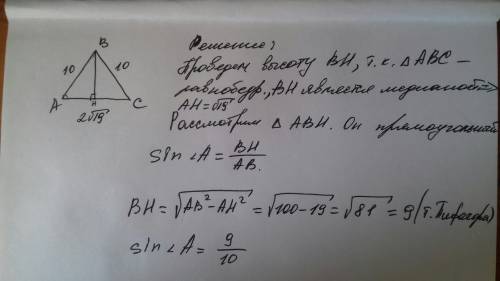 B
10 10
A H C
2√19
Решение:
Проведем высоту BH, т.к. △ABC –
равнобедр., BH является медианой ⇒
AH=√19
Рассмотрим △ ABH. Он прямоугольный
sin ∠A = BH/AB.
BH = √AB² – AH² = √100 – 19 = √81 = 9 (т. Пифагора)
sin ∠A = 9/10